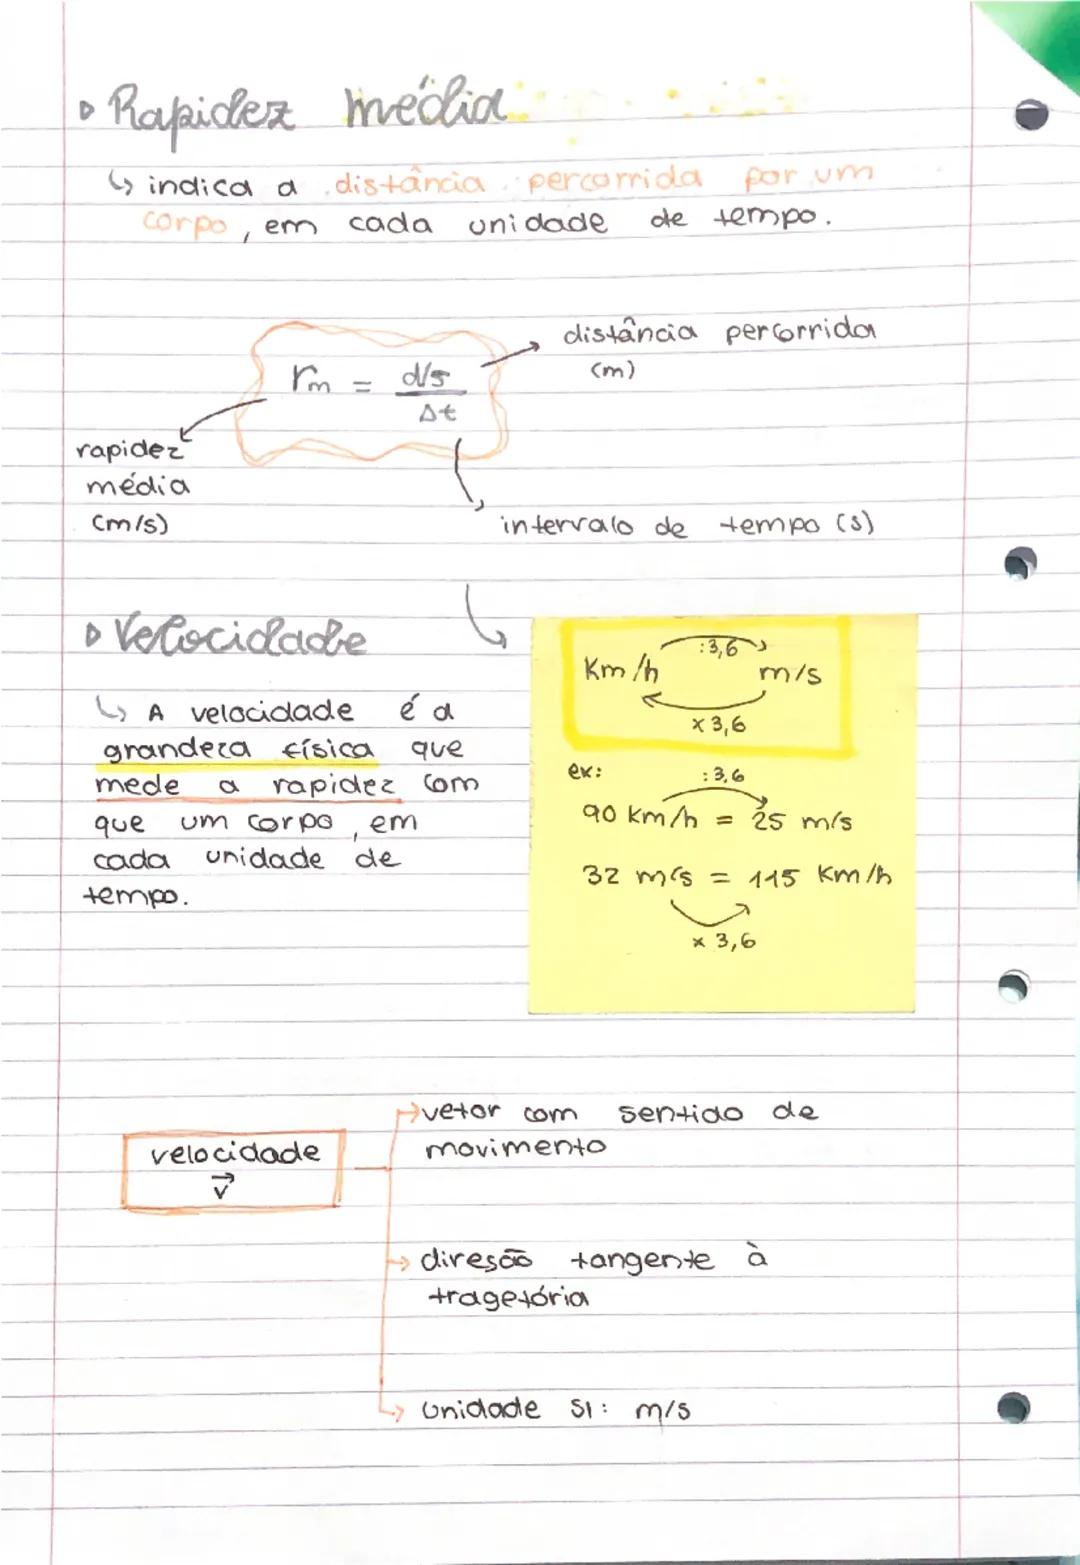 Rapidez média
↳ indica a distância percorrida por um
corpo, em cada unidade de tempo.
distância percorrida
(m)
rm = d/s
Δt
rapidez
média
(m/s)
intervalo de tempo (s)
Velocidade
↳ A velocidade é a
grandeza física que
mede a rapidez com
que um corpo, em
cada unidade de
tempo.
:3,6
Km/h m/s
x 3,6
ex:
:3,6
90 km/h = 25 m/s
32 m/s = 115 Km/h
x 3,6
velocidade
v⃗
vetor com sentido de
movimento
diresão tangente à
tragetória
Unidade SI: m/s